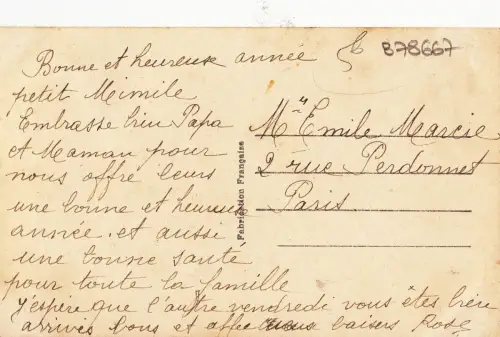 B78667
Bonne et heureuse année
petit Mimile
Embrasse bien Papa
et Maman pour
nous offre leurs
une bonne et heureuse
année et aussi
une bonne santé
pour toute la famille
j'espère que l'autre vendredi vous êtes bien
arrivés bons et baisers Rose
Fabrication Française
Mr Emile Marcie
2 rue Perdonnet
Paris